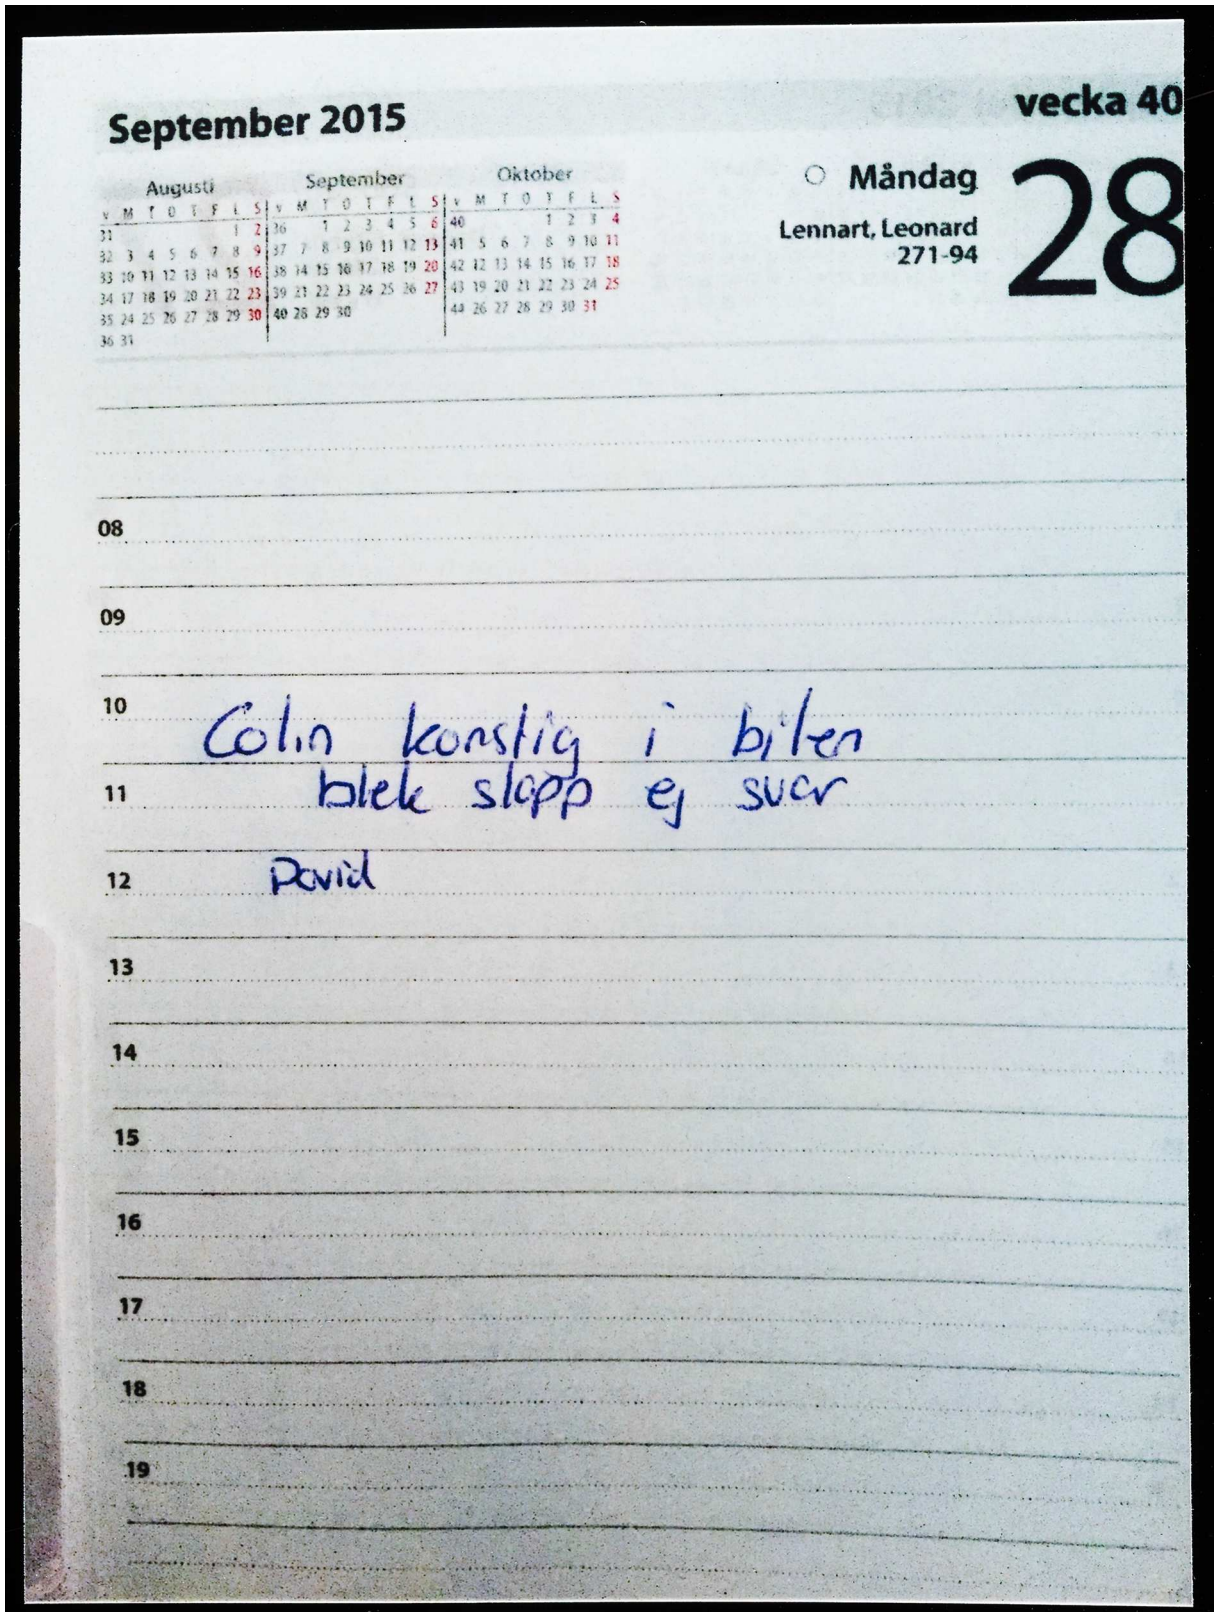 September 2015
vecka 40
Augusti
v M T O T F L S
31 1 2
32 3 4 5 6 7 8 9
33 10 11 12 13 14 15 16
34 17 18 19 20 21 22 23
35 24 25 26 27 28 29 30
36 31
September
v M T O T F L S
36 1 2 3 4 5 6
37 7 8 9 10 11 12 13
38 14 15 16 17 18 19 20
39 21 22 23 24 25 26 27
40 28 29 30
Oktober
v M T O T F L S
40 1 2 3 4
41 5 6 7 8 9 10 11
42 12 13 14 15 16 17 18
43 19 20 21 22 23 24 25
44 26 27 28 29 30 31
Måndag
28
Lennart, Leonard
271-94
08
09
10
Colin konstig i bilen
11 blek slapp ej svar
12 David
13
14
15
16
17
18
19